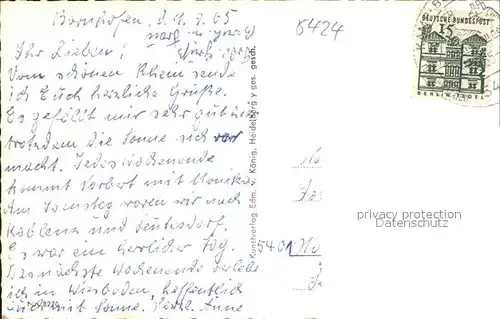 Bornhofen, d. 1.9.65
Ihr Lieben!
Vom schönen Rhein sende
ich Euch herzliche Grüße.
Es gefällt mir sehr gut hier
trotzdem die Sonne sich rar
macht. Jedes Wochenende
kommt Norbert mit Monika.
Am Samstag waren wir nach
Koblenz und Leutesdorf.
Es war ein herrlicher Tag.
Das nächste Wochenende verlebe
ich in Wiesbaden, hoffentlich
auch mit Sonne. Herzl. Anne
8424
DEUTSCHE BUNDESPOST
15
BERLIN-TEGEL
Kunstverlag Edm. v. König, Heidelberg
ges. gesch.
5401
privacy protection
Datenschutz